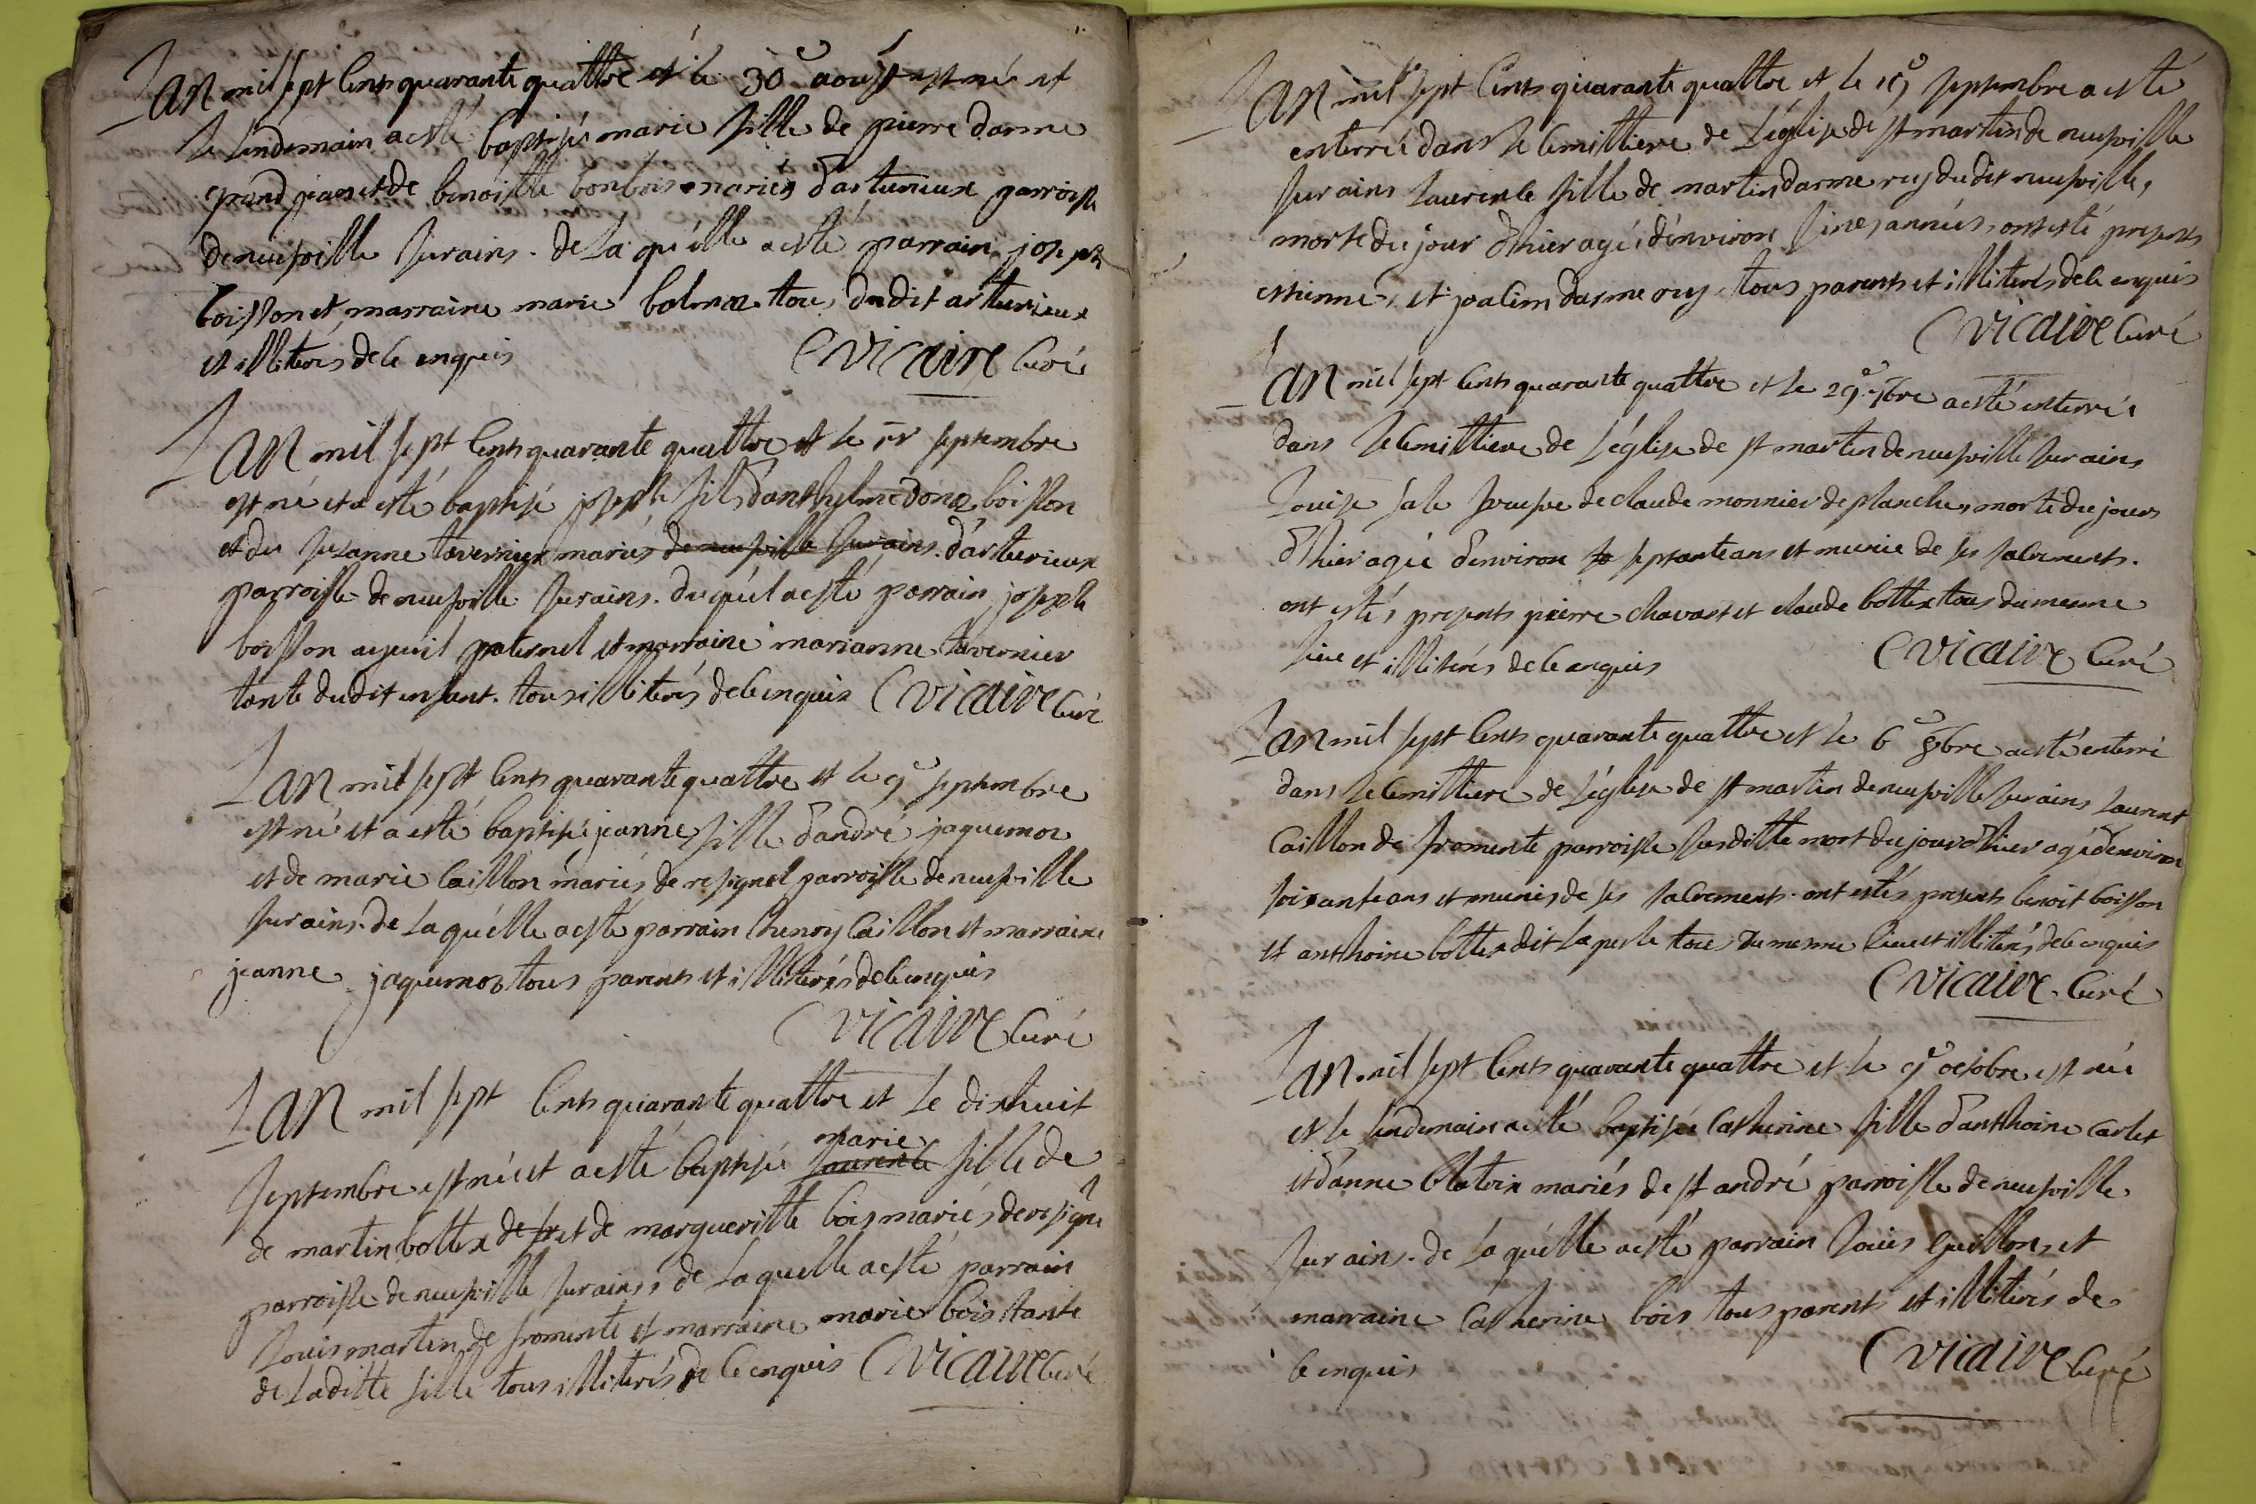 Lan mil sept cents quarante quattre et le 30e aoust est née et
le lendemain a esté baptisée marie fille de pierre darme
grand jean et de benoiste bonbois mariés d'arturieux parroisse
de neufville sur ains. de la quélle a esté parrain joseph
boisson et marraine marie bolmoz tous dudit arturieux
et illiterés de ce enquis Vicaire Curé
Lan mil sept cents quarante quattre et le septembre
est né et a esté baptisé joseph fils d'anthelme donz boisson
et de susanne tavernier mariés de neufville sur ains. d'arturieux
parroisse de neufville sur ains. du quél a esté parrain joseph
boisson ayeuil paternel et marraine marianne tavernier
tante dudit enfant. tous illiterés de ce enquis Vicaire Curé
Lan mil sept cents quarante quattre et le 9e septembre
est née et a esté baptisée jeanne fille d'andré jaquemoz
et de marie Caillon mariés de resignel parroisse de neufville
sur ains. de la quélle a esté parrain henry Caillon et marraine
jeanne jaquemoz tous parents et illiterés de ce enquis
Vicaire Curé
Lan mil sept cents quarante quattre et le dixhuit
marie
septembre est née et a esté baptisée laurence fille de
de martin bottex de et de margueritte bois mariés de resignel
parroisse de neufville sur ains. de la quelle a esté parrain
Louis martin de fromente et marraine marie bois tante
de laditte fille tous illiterés de ce enquis Vicaire Curé
Lan mil sept cents quarante quattre et le 19e septembre a esté
enterrée dans le cemittiere de l'église de st martin de neufville
sur ains laurence fille de martin darme ruy dudit neufville,
morte du jour d'hier agée d'environ années, ont esté presents
estienne, et joacim darme ruy tous parents et illiterés de ce enquis
Vicaire Curé
Lan mil sept cents quarante quattre et le 29e 7bre a esté enterrée
dans le cemittiere de l'église de st martin de neufville sur ains
Louise sale veufve de claude monnier de planche, morte du jour
d'hier agée d'environ septante ans et munie de ses sacrements.
ont estés presents pierre chavant et claude bottex tous du mesme
lieu et illiterés de ce enquis Vicaire Curé
Lan mil sept cents quarante quattre et le 6e 8bre a esté enterré
dans le cemittiere de l'église de st martin de neufville sur ains laurent
Caillon de fromente parroisse susditte mort du jour d'hier agé d'environ
soixante ans et munis de ses sacrements. ont estés presents benoit boisson
et anthoine bottex dit la perle tous du mesme lieu et illiterés de ce enquis
Vicaire Curé
Lan mil sept cents quarante quattre et le 9e octobre est née
et le lendemain a esté baptisée Catherine fille d'anthoine carlet
et d'anne blatvix mariés de st andré parroisse de neufville
sur ains. de la quélle a esté parrain Louis guillon, et
marraine Catherine bois tous parents et illiterés de
ce enquis Vicaire Curé